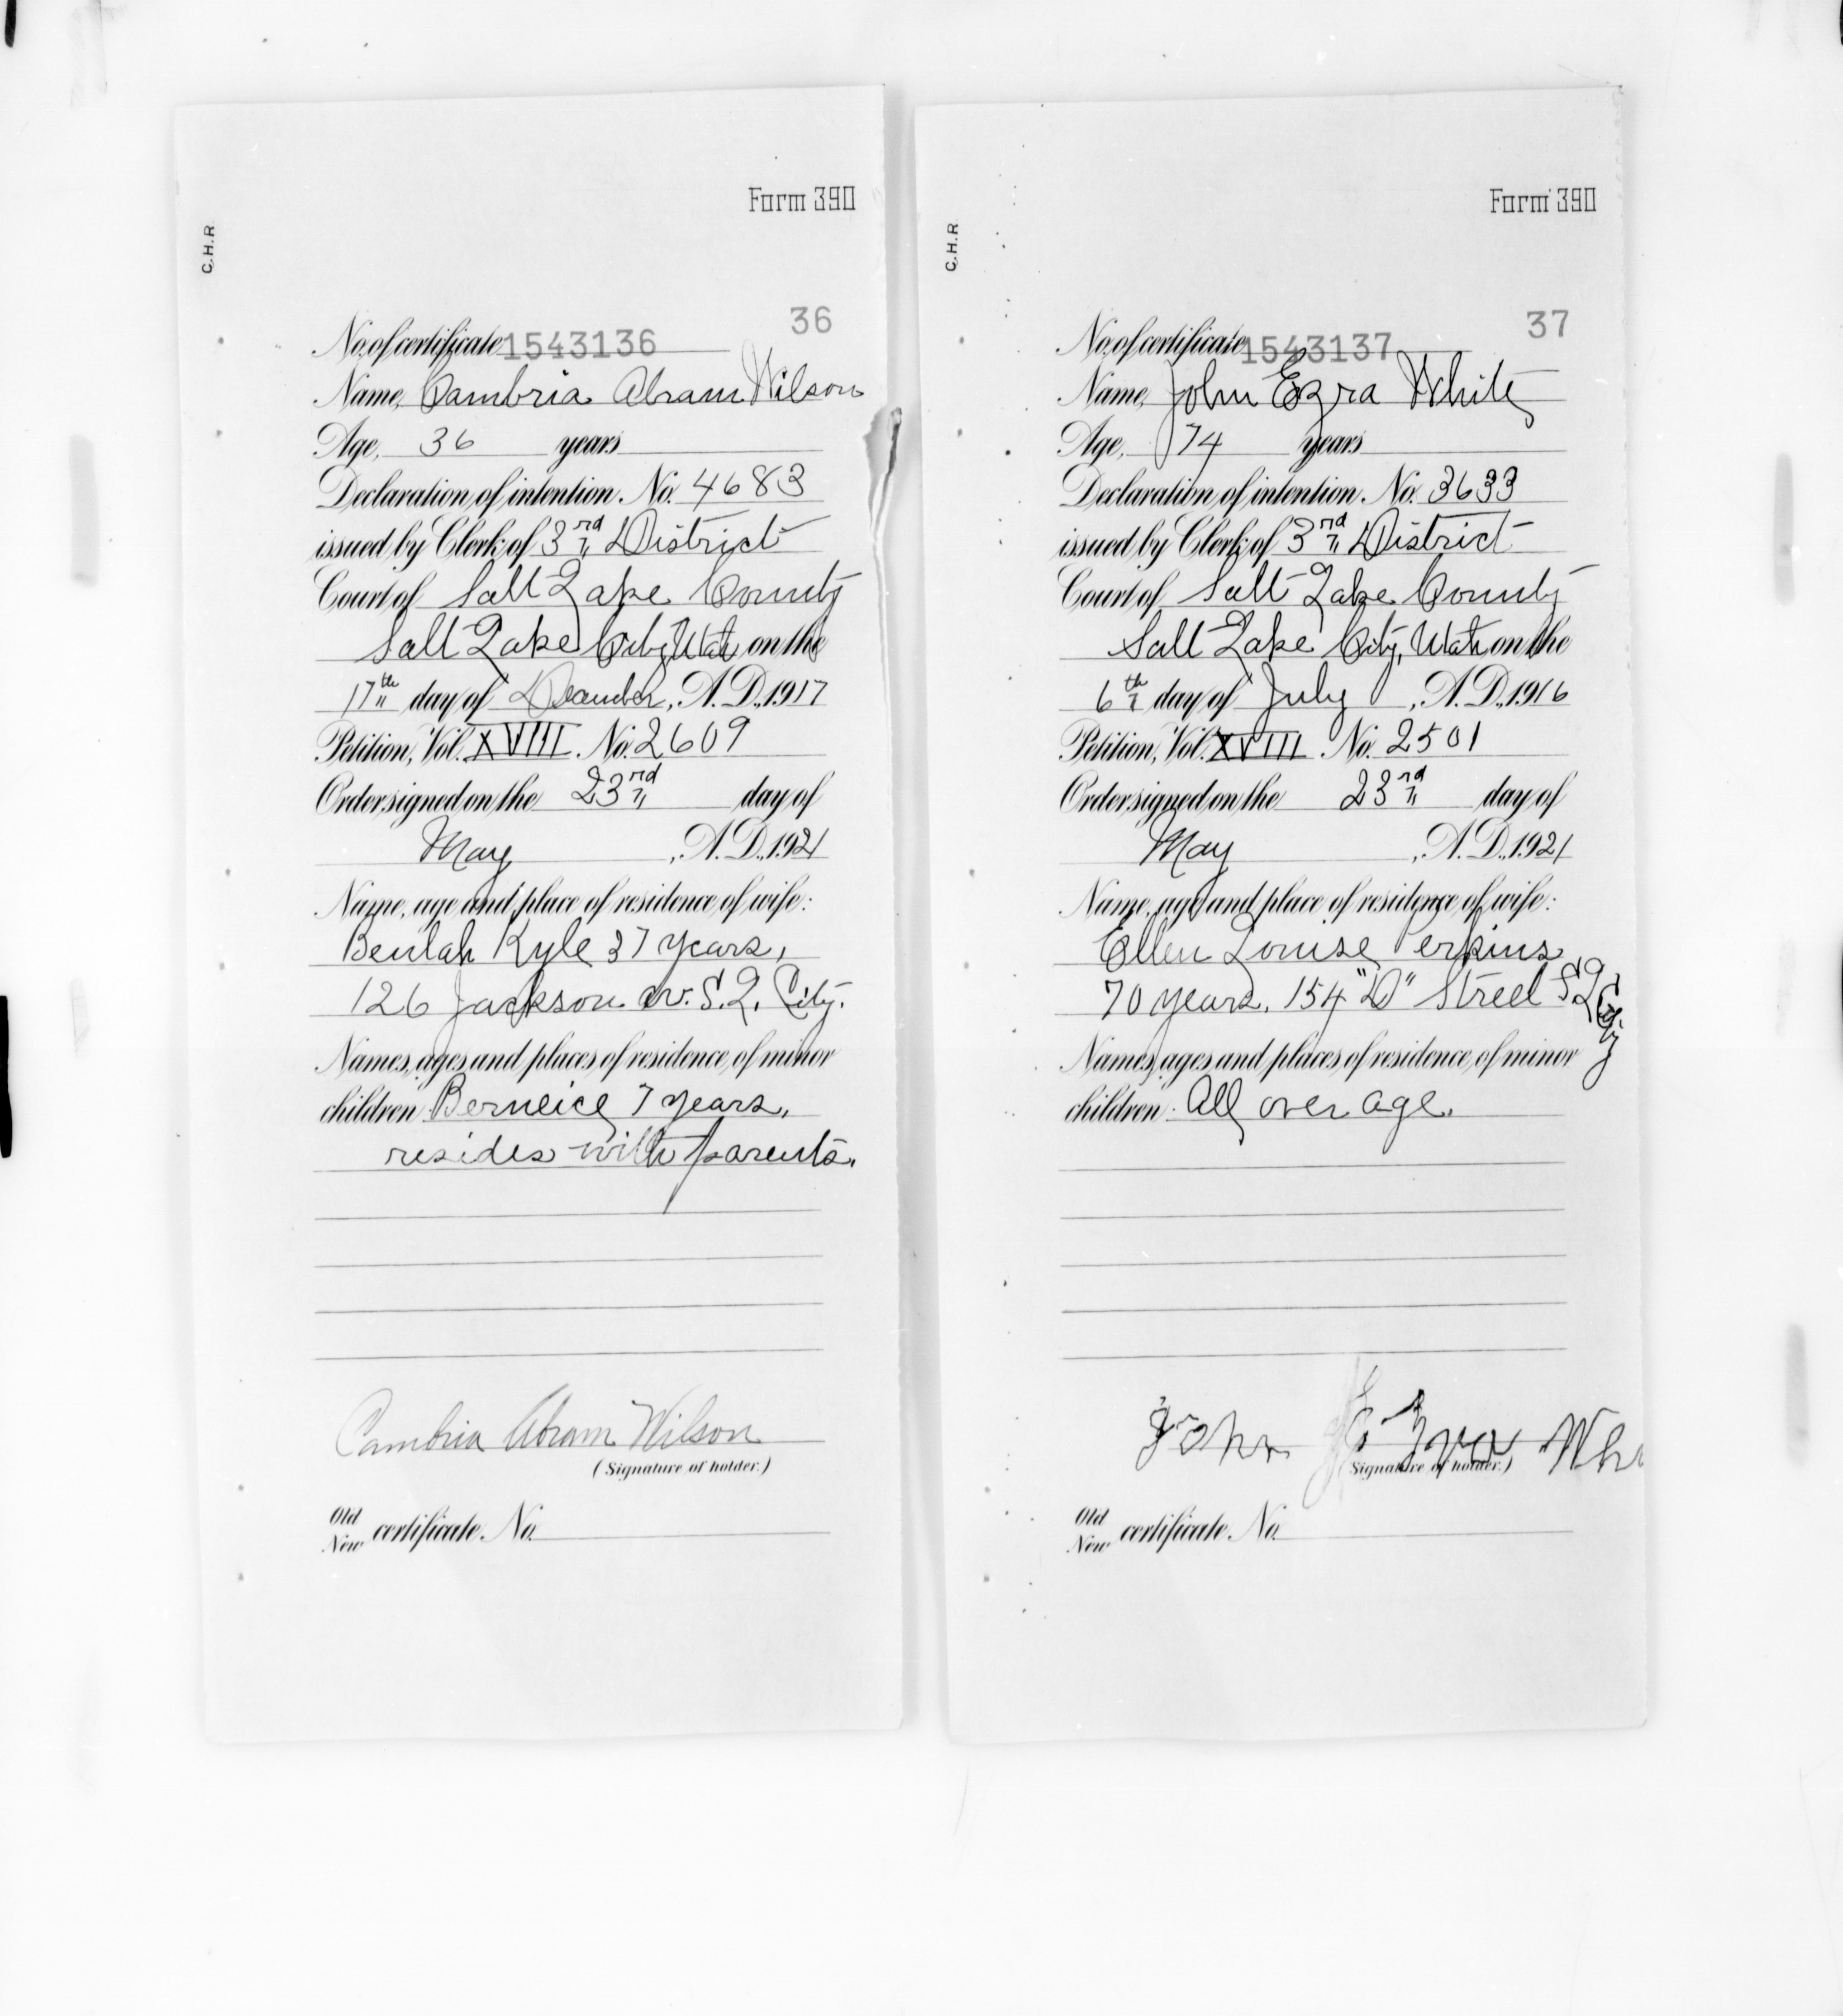 Form 390
C.H.R.
36
No. of certificate 1543136
Name, Cambria Abram Wilson
Age, 36 years
Declaration of intention No. 4683
issued by Clerk of 3rd District
Court of Salt Lake County
Salt Lake City, Utah on the
17th day of December, A.D., 1917
Petition, Vol. XVIII. No. 2609
Order signed on the 23rd day of
May, A.D., 1921
Name, age and place of residence of wife:
Beulah Kyle 37 years,
126 Jackson Av. S. L. City.
Names, ages and places of residence of minor
children Berneice 7 years,
resides with parents.
Cambria Abram Wilson
(Signature of holder.)
Old
New certificate No.
Form 390
C.H.R.
37
No. of certificate 1543137
Name, John Ezra White
Age, 74 years
Declaration of intention No. 3633
issued by Clerk of 3rd District
Court of Salt Lake County
Salt Lake City, Utah on the
6th day of July, A.D., 1916
Petition, Vol. XVIII No. 2501
Order signed on the 23rd day of
May, A.D., 1921
Name, age and place of residence of wife:
Ellen Louise Perkins
70 years, 154 "D" Street S.L. City
Names, ages and places of residence of minor
children. All over age.
John Ezra Whi
(Signature of holder.)
Old
New certificate No.